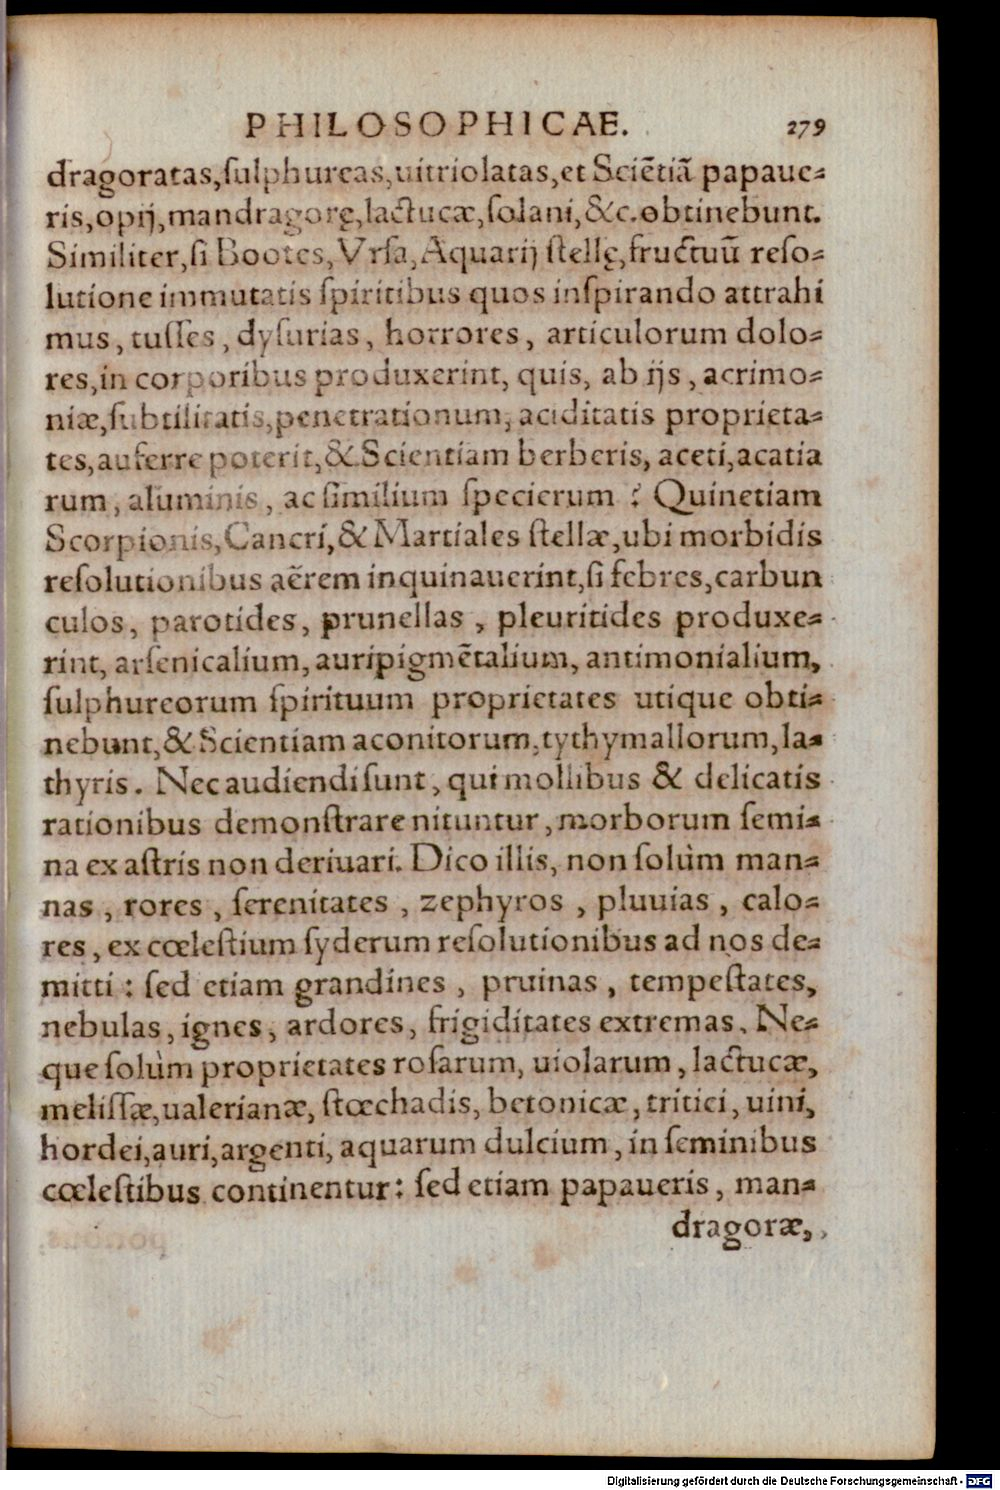 PHILOSOPHICAE. 279
dragoratas,ſulphureas,uitriolatas,et Sciẽtiã papaue-
ris,opij,mandragorę,lactucæ,ſolani,&c.obtinebunt.
Similiter,ſi Bootes,Vrſa,Aquarij ſtellę,fructuũ reſo-
lutione immutatis ſpiritibus quos inſpirando attrahi
mus, tuſſes, dyſurias, horrores, articulorum dolo-
res,in corporibus produxerint, quis, ab ijs, acrimo-
niæ,ſubtilitatis,penetrationum, aciditatis proprieta-
tes,auferre poterit,&Scientiam berberis, aceti,acatia
rum, aluminis, ac ſimilium ſpecierum ? Quinetiam
Scorpionis,Cancri,& Martiales ſtellæ,ubi morbidis
reſolutionibus aërem inquinauerint,ſi febres,carbun
culos, parotides, prunellas, pleuritides produxe-
rint, arſenicalium, auripigmẽtalium, antimonialium,
ſulphureorum ſpirituum proprietates utique obti-
nebunt,& Scientiam aconitorum,tythymallorum,la-
thyris. Nec audiendi ſunt, qui mollibus & delicatis
rationibus demonſtrare nituntur, morborum ſemi-
na ex aſtris non deriuari. Dico illis, non ſolùm man-
nas, rores, ſerenitates, zephyros, pluuias, calo-
res, ex cœleſtium ſyderum reſolutionibus ad nos de-
mitti : ſed etiam grandines, pruinas, tempeſtates,
nebulas, ignes, ardores, frigiditates extremas. Ne-
que ſolùm proprietates roſarum, uiolarum, lactucæ,
meliſſæ,ualerianæ, ſtœchadis, betonicæ, tritici, uini,
hordei,auri,argenti, aquarum dulcium, in ſeminibus
cœleſtibus continentur: ſed etiam papaueris, man-
dragoræ,
Digitalisierung gefördert durch die Deutsche Forschungsgemeinschaft - DFG